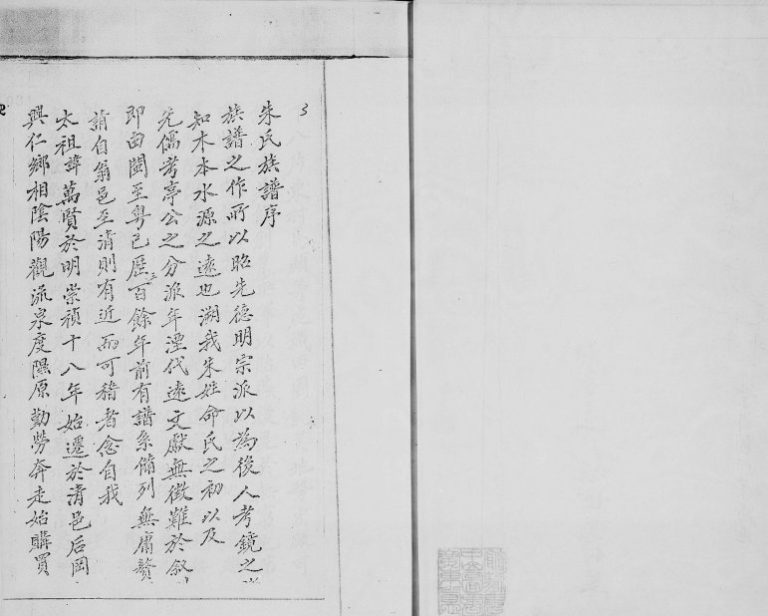 3
朱氏族譜序
族譜之作所以昭先德明宗派以為後人考鏡之
知木本水源之遠也溯我朱姓命氏之初以及
先儒考亭公之分派年湮代遠文獻無徵難於叙
即由閩至粵已歷三百餘年前有譜系備列無庸贅
請自翁邑至清則有近而可稽者念自我
太祖諱萬賢於明崇禎十八年始遷於清邑后岡
興仁鄉相陰陽觀流泉度隰原勤勞奔走始購買